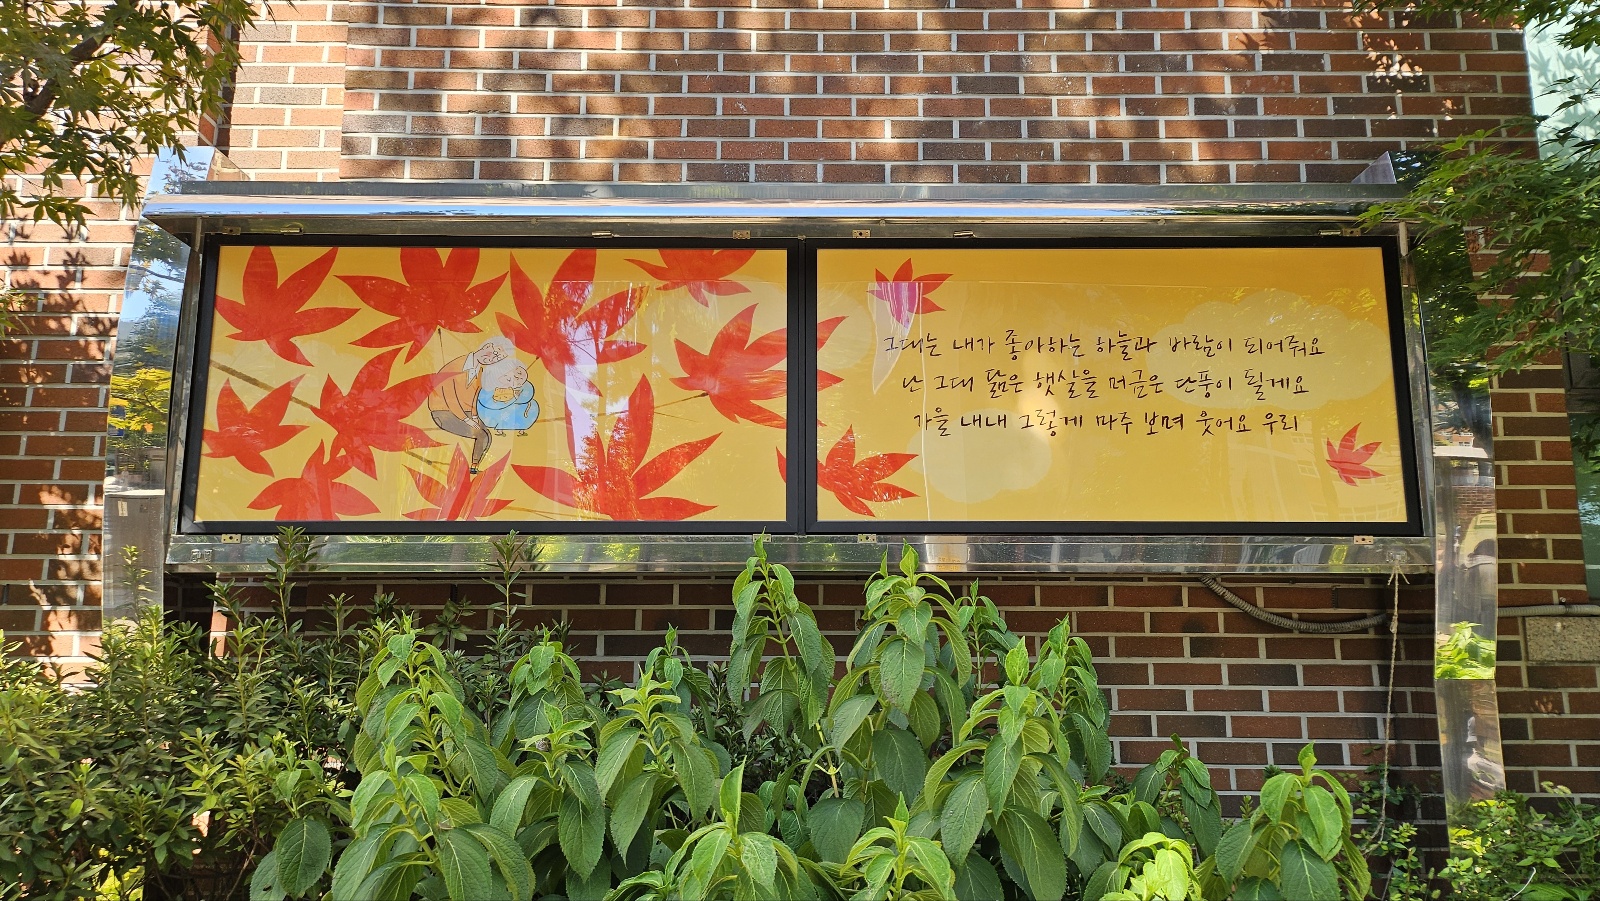 그대는 내가 좋아하는 하늘과 바람이 되어줘요
난 그대 닮은 햇살을 머금은 단풍이 될게요
가을 내내 그렇게 마주 보며 웃어요 우리